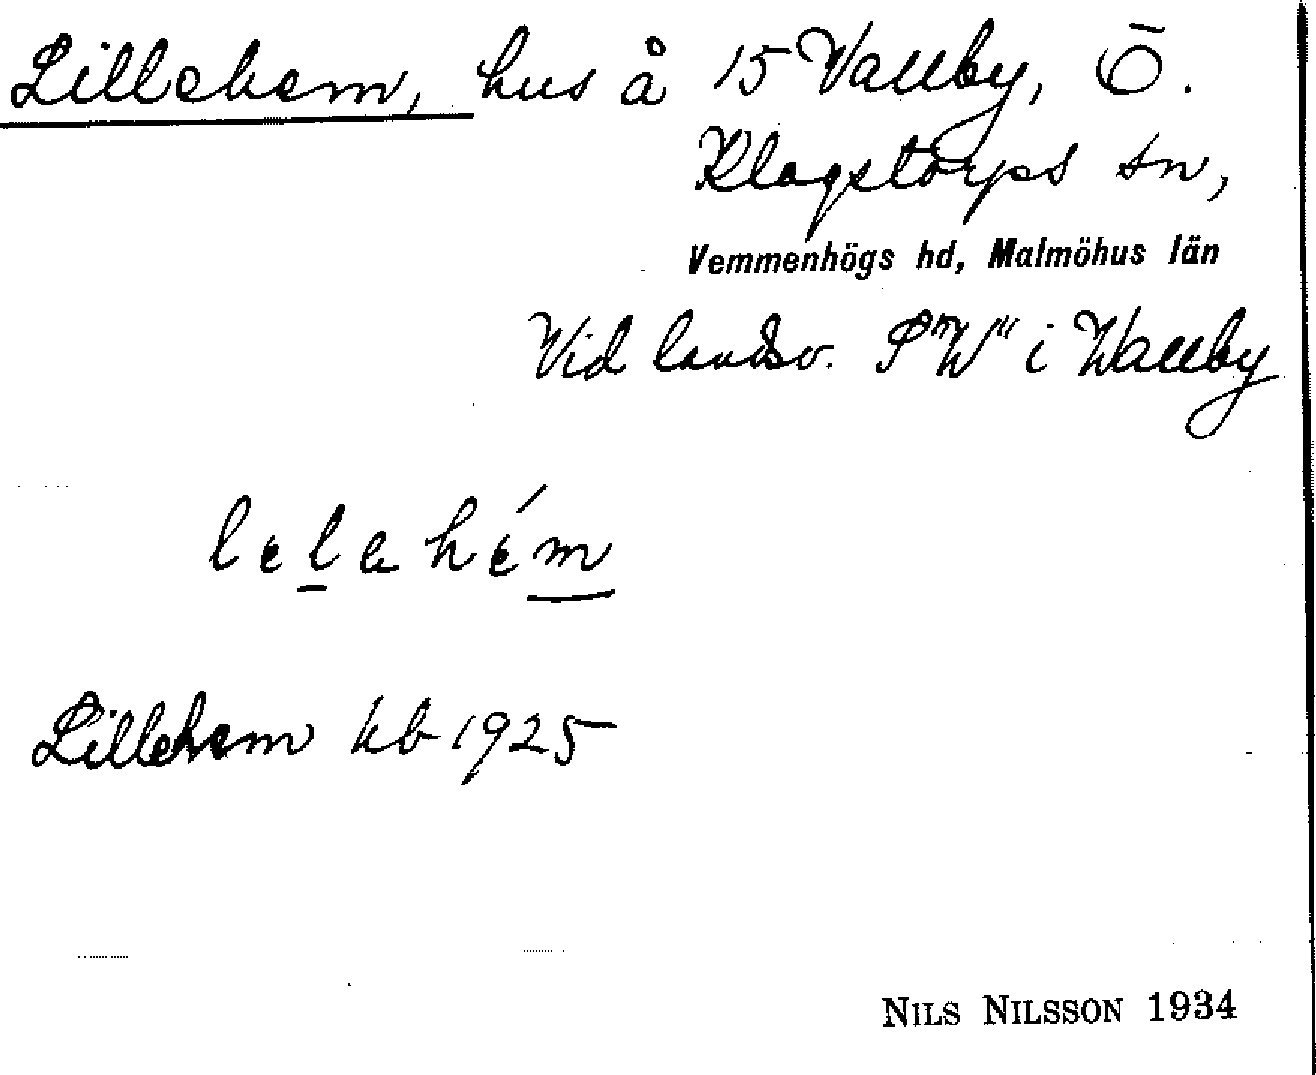 Lillehem, hus å 15 Vallby, Ö.
Klagstorps sn,
Vemmenhögs hd, Malmöhus län
Vid landsv. S "W" i Wallby
lelahém
Lillehem kb 1925
NILS NILSSON 1934